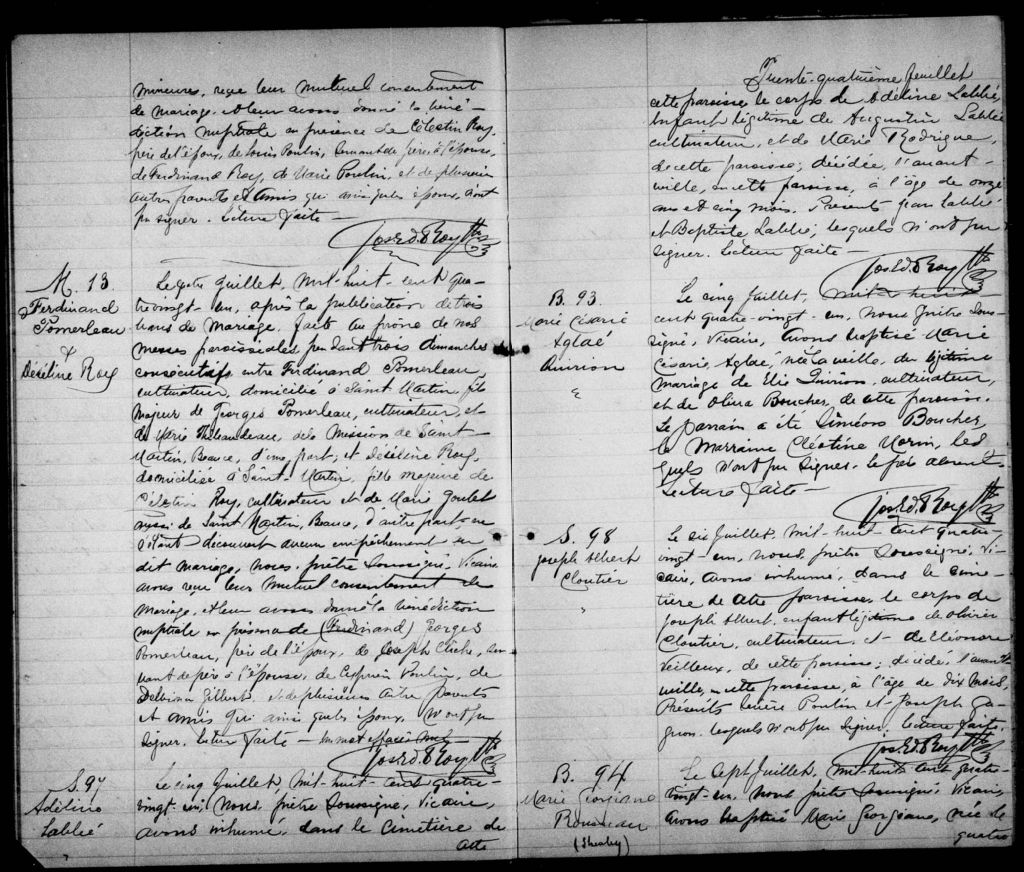 mineurs, reçu leur mutuel consentement
de mariage et leur avons donné la béné-
diction nuptiale en présence de Célestin Roy,
père de l'époux, de Louis Poulin, servant de père à l'épouse,
de Ferdinand Roy, de Marie Poulin, et de plusieurs
autres parents et amis qui ainsi que les époux, n'ont
pu signer. Lecture faite —
Jos. Ed. Roy Ptre
M. 13.
Ferdinand
Pomerleau
&
Déséline Roy
Le juillet, mil-huit-cent-qua-
trevingt-un, après la publication de trois
bans de mariage, faite au prône de nos
messes paroissiales, pendant trois dimanches
consécutifs entre Ferdinand Pomerleau,
cultivateur, domicilié à Saint Martin, fils
majeur de Georges Pomerleau, cultivateur, et
de Marie Thibaudeau, de la Mission de Saint-
Martin, Beauce, d'une part, et Déséline Roy,
domiciliée à Saint-Martin, fille majeure de
Célestin Roy, cultivateur et de Marie Goulet
aussi de Saint Martin, Beauce, d'autre part; ne
s'étant découvert aucun empêchement au
dit mariage, nous, prêtre soussigné, Vicaire
avons reçu leur mutuel consentement de
mariage, et leur avons donné la bénédiction
nuptiale en présence de (Ferdinand) Georges
Pomerleau, père de l'époux, de Joseph Cliche, ser-
vant de père à l'épouse, de Cyprien Poulin, de
Gilbert, et de plusieurs autres parents
et amis qui ainsi que les époux, n'ont pu
signer. Lecture faite — un mot effacé nul
Jos. Ed. Roy Ptre
S. 97
Adéline
Labbé
Le cinq juillet, mil-huit-cent quatre-
vingt-un, nous, prêtre soussigné, Vicaire,
avons inhumé, dans le cimetière de
cette
Trente-quatrième feuillet
cette paroisse, le corps de Adéline Labbé,
enfant légitime de Augustin Labbé
cultivateur, et de Marie Rodrigue,
de cette paroisse; décédée, l'avant-
veille, en cette paroisse, à l'âge de onze
ans et cinq mois. Présents Jean Labbé
et Baptiste Labbé; lesquels n'ont pu
signer. Lecture faite —
Jos. Ed. Roy Ptre
B. 93.
Marie Césarie
Aglaé
Quirion
Le cinq Juillet, mil-huit-
cent quatre-vingt-un, nous prêtre sous-
signé, Vicaire, avons baptisé Marie
Césarie Aglaé, née la veille, du légitime
mariage de Elie Quirion, cultivateur,
et de Olina Boucher, de cette paroisse.
Le parrain a été Siméon Boucher,
la Marraine Cléotine Morin, les-
quels n'ont pu signer. le père absent.
Lecture faite —
Jos. Ed. Roy Ptre
S. 98
Joseph Albert
Cloutier
Le six Juillet, mil-huit-cent quatre-
vingt-un, nous, prêtre soussigné, Vi-
caire, avons inhumé, dans le cime-
tière de cette paroisse, le corps de
Joseph Albert, enfant légitime de Olivier
Cloutier, cultivateur, et de Eléonore
Veilleux, de cette paroisse; décédé, l'avant
veille, en cette paroisse, à l'âge de dix mois.
Présents Poulin et Joseph Ga-
gnon, lesquels n'ont pu signer, lecture faite.
Jos. Ed. Roy Ptre
B. 94
Marie Georgiana
Rousseau
(Shealy)
Le sept Juillet, mil-huit cent quatre-
vingt-un, nous prêtre soussigné, Vicaire,
avons baptisé Marie Georgiane, née de
quatre